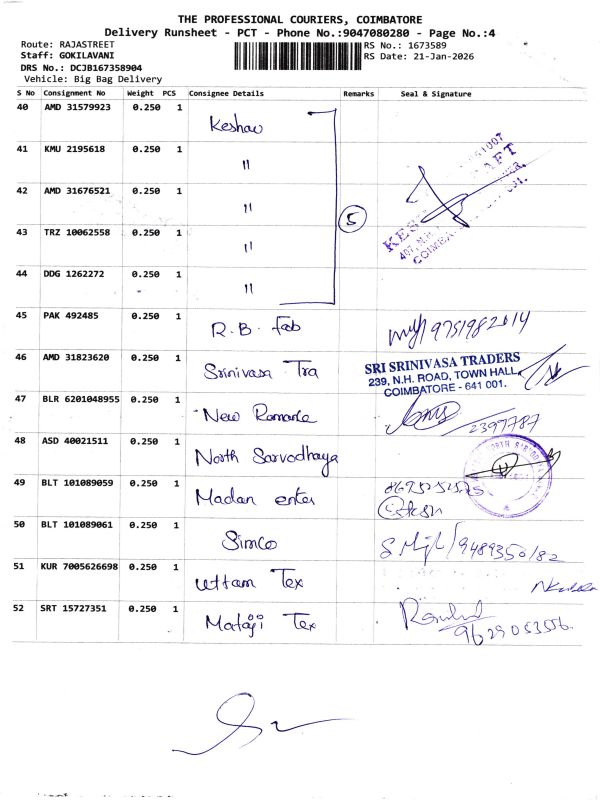 THE PROFESSIONAL COURIERS, COIMBATORE
Delivery Runsheet - PCT - Phone No.:9047080280 - Page No.:4
Route: RAJASTREET
Staff: GOKILAVANI
DRS No.: DCJB167358904
Vehicle: Big Bag Delivery
RS No.: 1673589
RS Date: 21-Jan-2026
S No Consignment No Weight PCS Consignee Details Remarks Seal & Signature
40 AMD 31579923 0.250 1 Keshav
41 KMU 2195618 0.250 1 "
42 AMD 31676521 0.250 1 "
5
43 TRZ 10062558 0.250 1 "
44 DDG 1262272 0.250 1 "
45 PAK 492485 0.250 1 R.B. Fab 9751982014
46 AMD 31823620 0.250 1 Srinivasa Tra
SRI SRINIVASA TRADERS
239, N.H. ROAD, TOWN HALL,
COIMBATORE - 641 001.
47 BLR 6201048955 0.250 1 New Romance 2397787
48 ASD 40021511 0.250 1 North Sarvodhaya
49 BLT 101089059 0.250 1 Madan enter
50 BLT 101089061 0.250 1 Simco 9489350182
51 KUR 7005626698 0.250 1 Uttam Tex
52 SRT 15727351 0.250 1 Mataji Tex
9629053556